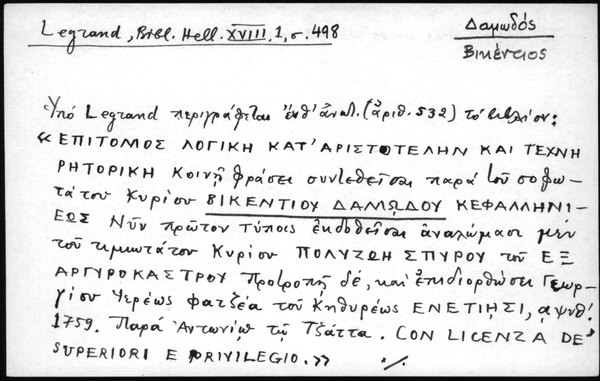 Legrand, Bibl. Hell. XVIII, 1, σ. 498
Δαμωδός
Βικέντιος
Ὑπό Legrand περιγράφεται ἐνθ' ἀνωτ. (ἀριθ. 532) τό βιβλίον:
«ΕΠΙΤΟΜΟΣ ΛΟΓΙΚΗ ΚΑΤ' ΑΡΙΣΤΟΤΕΛΗΝ ΚΑΙ ΤΕΧΝΗ
ΡΗΤΟΡΙΚΗ Κοινῇ φράσει συντεθεῖσαι παρά τοῦ σοφω-
τάτου Κυρίου ΒΙΚΕΝΤΙΟΥ ΔΑΜΩΔΟΥ ΚΕΦΑΛΛΗΝΙ-
ΕΩΣ Νῦν πρῶτον τύποις ἐκδοθεῖσαι ἀναλώμασι μέν
τοῦ τιμιωτάτου Κυρίου ΠΟΛΥΖΩΗ ΣΠΥΡΟΥ τοῦ ΕΞ
ΑΡΓΥΡΟΚΑΣΤΡΟΥ Προτροπῇ δέ, καί ἐπιδιορθώσει Γεωρ-
γίου Ἱερέως Φατζέα τοῦ Κηθυρέως ΕΝΕΤΙΗΣΙ, αψνθ'.
1759. Παρά Ἀντωνίῳ τῷ Τζάττα. CON LICENZA DE'
SUPERIORI E PRIVILEGIO.» ./.